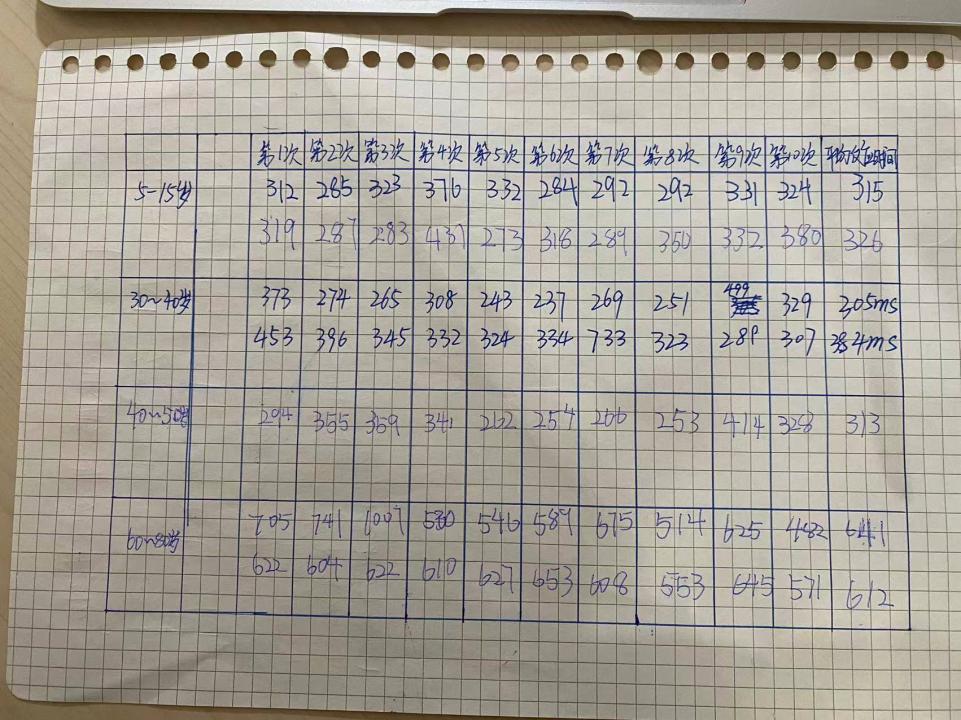 第1次 第2次 第3次 第4次 第5次 第6次 第7次 第8次 第9次 第10次 平均反应时间
5-15岁 312 285 323 376 332 284 292 292 331 324 315
319 287 283 437 273 318 289 350 332 380 326
499
30~40岁 373 274 265 308 243 237 269 251 329 305ms
453 396 345 332 324 334 733 323 289 307 384ms
40~50岁 294 355 359 341 262 254 266 253 414 328 313
705 741 1007 530 546 589 675 514 625 482 641
60~80岁
622 604 622 610 627 653 608 553 645 571 612